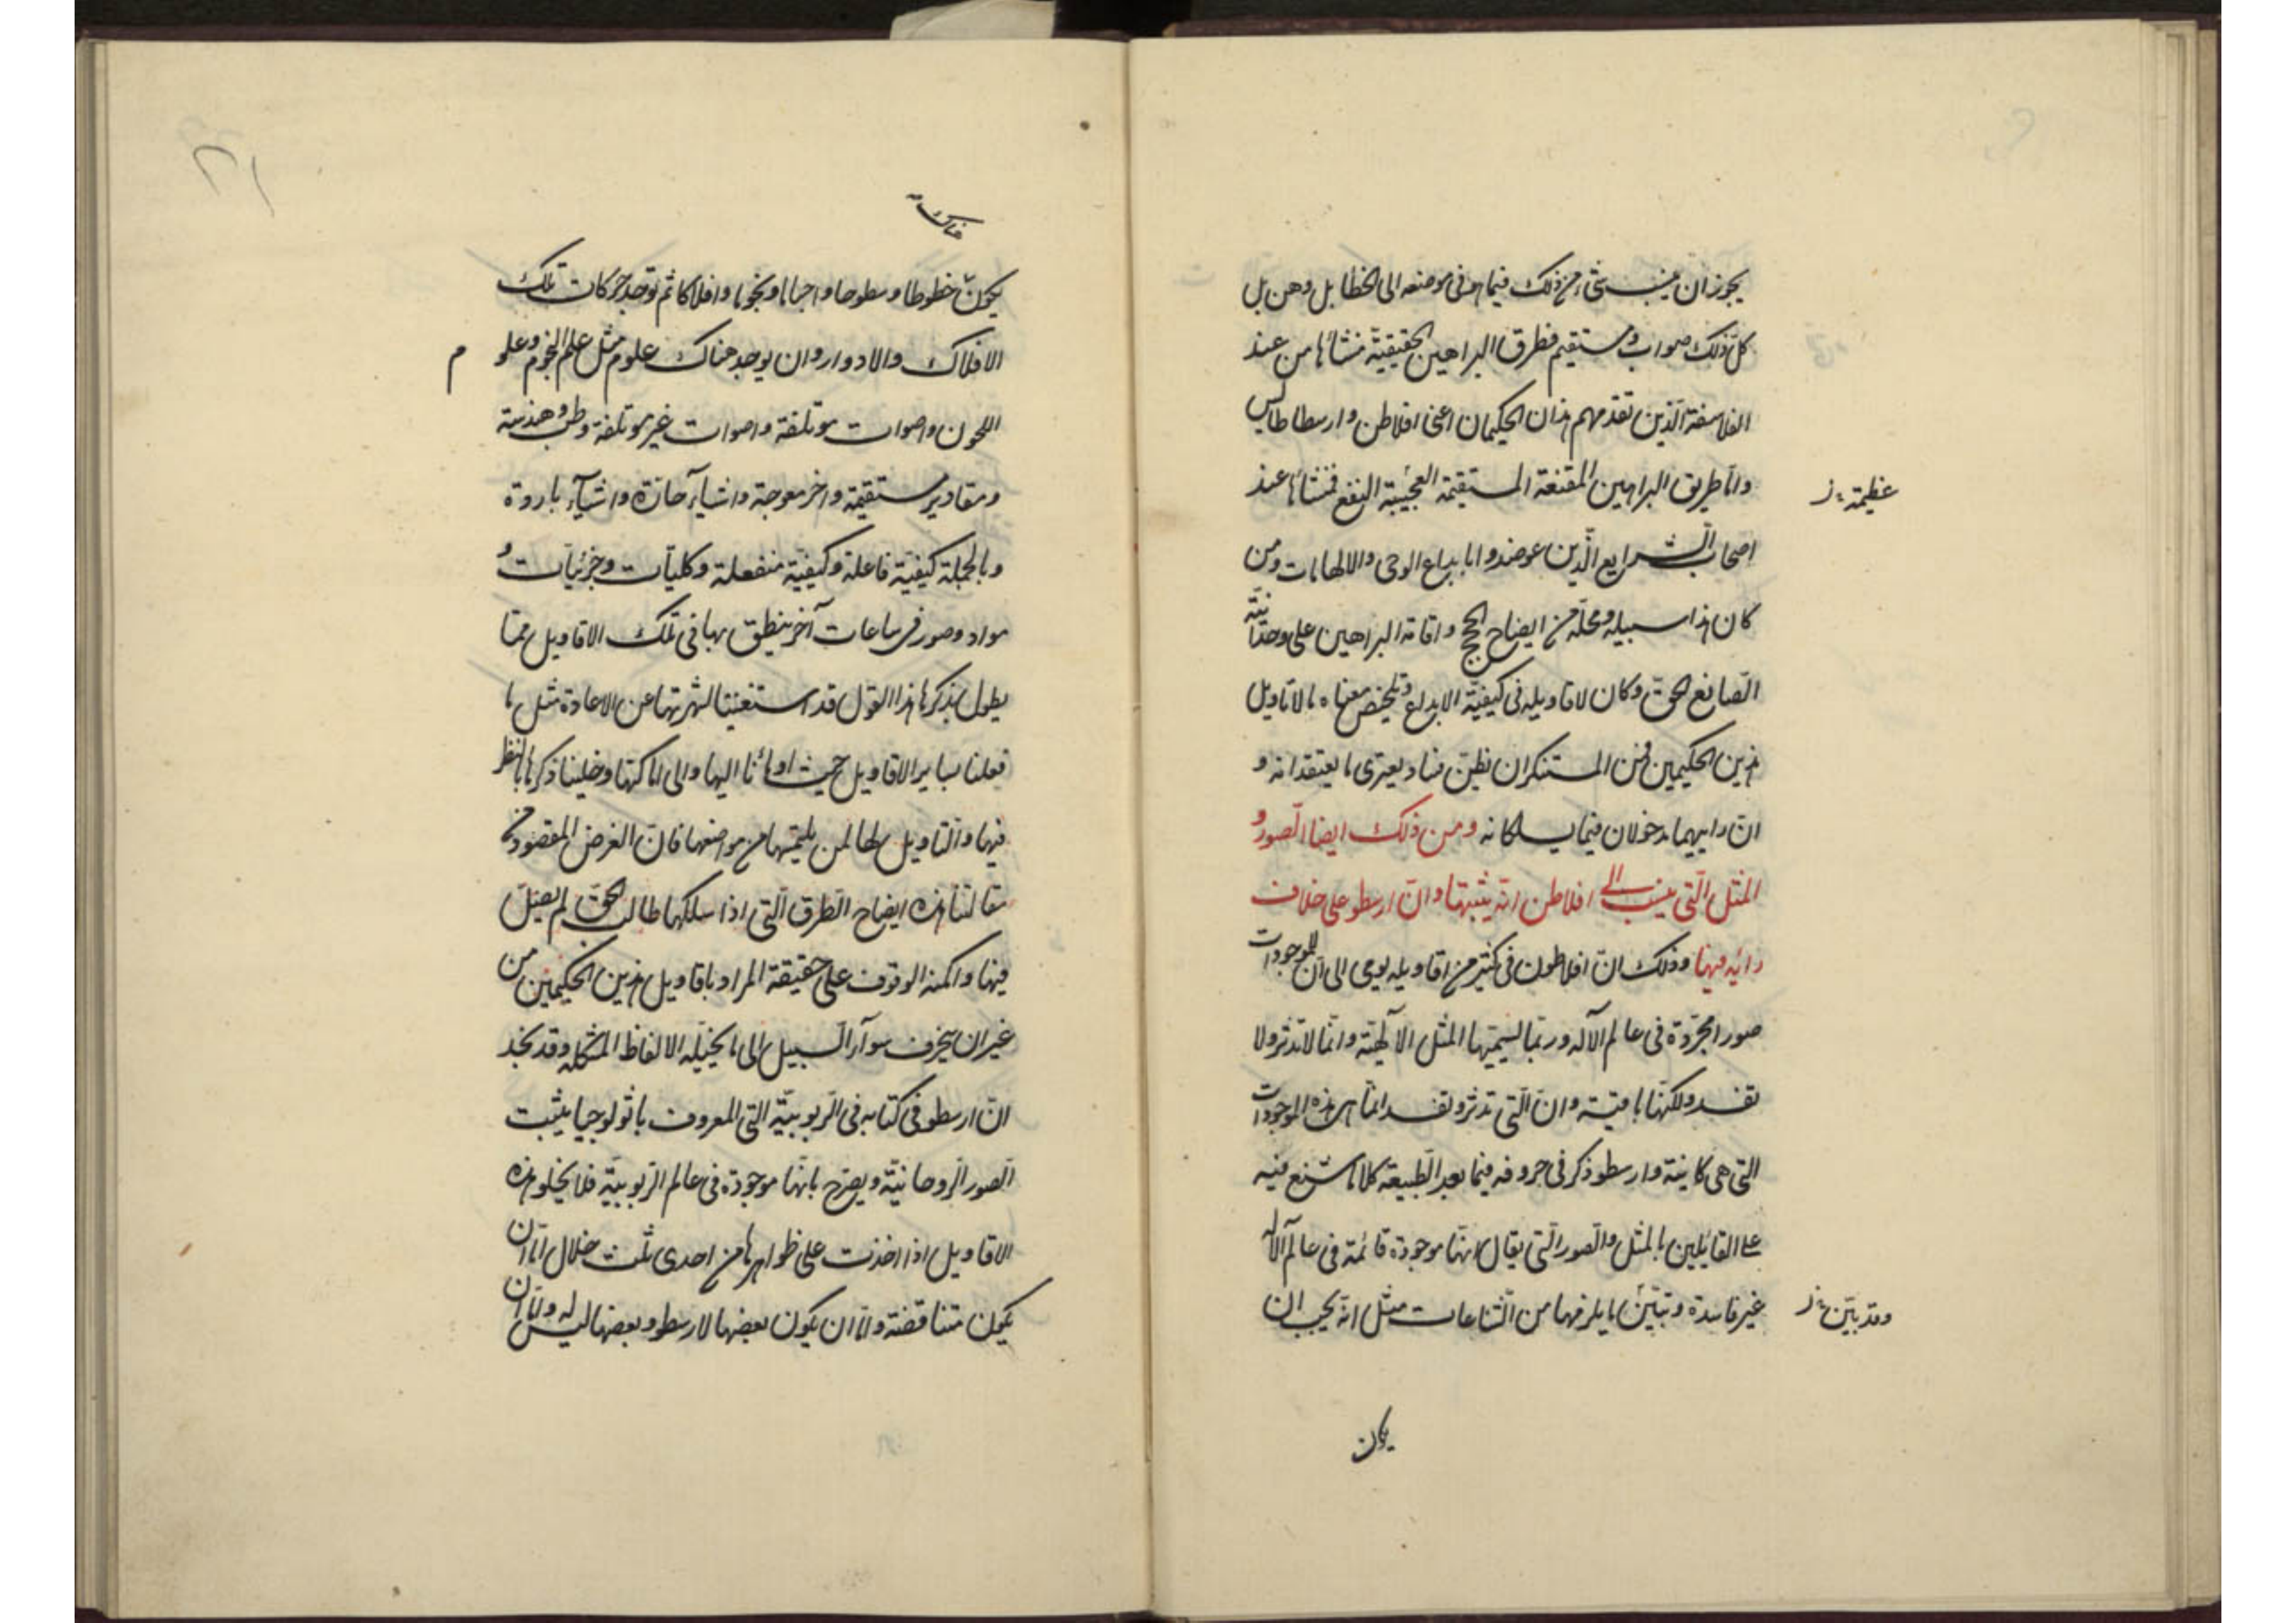 يجوز ان ينسب شئ من ذلك فيما هو فى موضعه الى الخطا بل وهن بل
كل ذلك صواب ومستقيم فطرق البراهين الحقيقية منشائها من عند
الفلاسفة الذين تقدمهم هذان الحكيمان اعنى افلاطن وارسطاطاليس
واما طريق البراهين المقنعة المستقيمة العجيبة النفع فمنشائها عند
عظيمة ز
اصحاب الشرايع الذين عوضدوا بابداع الوحى والالهامات ومن
كان هذا سبيله ومحله من ايضاح الحجج واقامة البراهين على وحدانية
الصانع الحق وكان لاقاويله فى كيفية الابداع وتلخيص معناه ما لاقاويل
هذين الحكيمين فمن المستنكر ان نظن فسادا يعترى ما يعتقدانه و
ان راييهما مدخولان فيما يسلكانه ومن ذلك ايضا الصور و
المثل التى ينسب الى افلاطن انه يثبتها وان ارسطو على خلاف
رائه فيها وذلك ان افلاطون فى كثير من اقاويله يومى الى ان للموجودات
صورا مجردة فى عالم الآله وربما يسميها المثل الآلهية وانها لا تدثر ولا
تفسد ولكنها باقية وان التى تدثر وتفسد انما هى هذه الموجودات
التى هى كاينة وارسطو ذكر فى حروفه فيما بعد الطبيعة كلاما شنع فيه
على القايلين بالمثل والصور التى يقال انها موجودة قائمة فى عالم الآله
غير فاسدة وتبين ما يلزمها من الشناعات مثل انه يجب ان
وقد بين ز
يكون
هناك
يكون خطوطا وسطوحا واجساما ونجوما وافلاكا ثم توجد حركات تلك
الافلاك والادوار وان يوجد هناك علوم مثل علم النجوم وعلوم
اللحون واصوات موتلفة واصوات غير موتلفة وطب وهندسة
ومقادير مستقيمة واخر معوجة واشيآء حارة واشيآء باردة
وبالجملة كيفية فاعلة وكيفية منفعلة وكليات وجزئيات و
مواد وصور فى ساعات آخر ينطق بها فى تلك الاقاويل مما
يطول بذكرها هذا القول قد استغنينا لشهرتها عن الاعادة مثل ما
فعلنا بساير الاقاويل حيث اومائنا اليها والى اماكنها وخلينا ذكرها بالنظر
فيها والتاويل لها لمن يلتمسها من مواضعها فان الغرض المقصود من
مقالتنا هذه ايضاح الطرق التى اذا سلكها طالب الحق لم يضل
فيها وامكنه الوقوف على حقيقة المراد باقاويل هذين الحكيمين من
غير ان ينحرف سوآء السبيل الى ما يخيله الالفاظ المشكله وقد نجد
ان ارسطو فى كتابه فى الربوبية التى المعروف باثولوجيا يثبت
الصور الروحانية ويصرح بانها موجودة فى عالم الربوبية فلا يخلو هذه
الاقاويل اذا اخذت على ظواهرها من احدى ثلث خلال اما ان
يكون متناقضة واما ان يكون بعضها لارسطو وبعضها ليس له واما ان